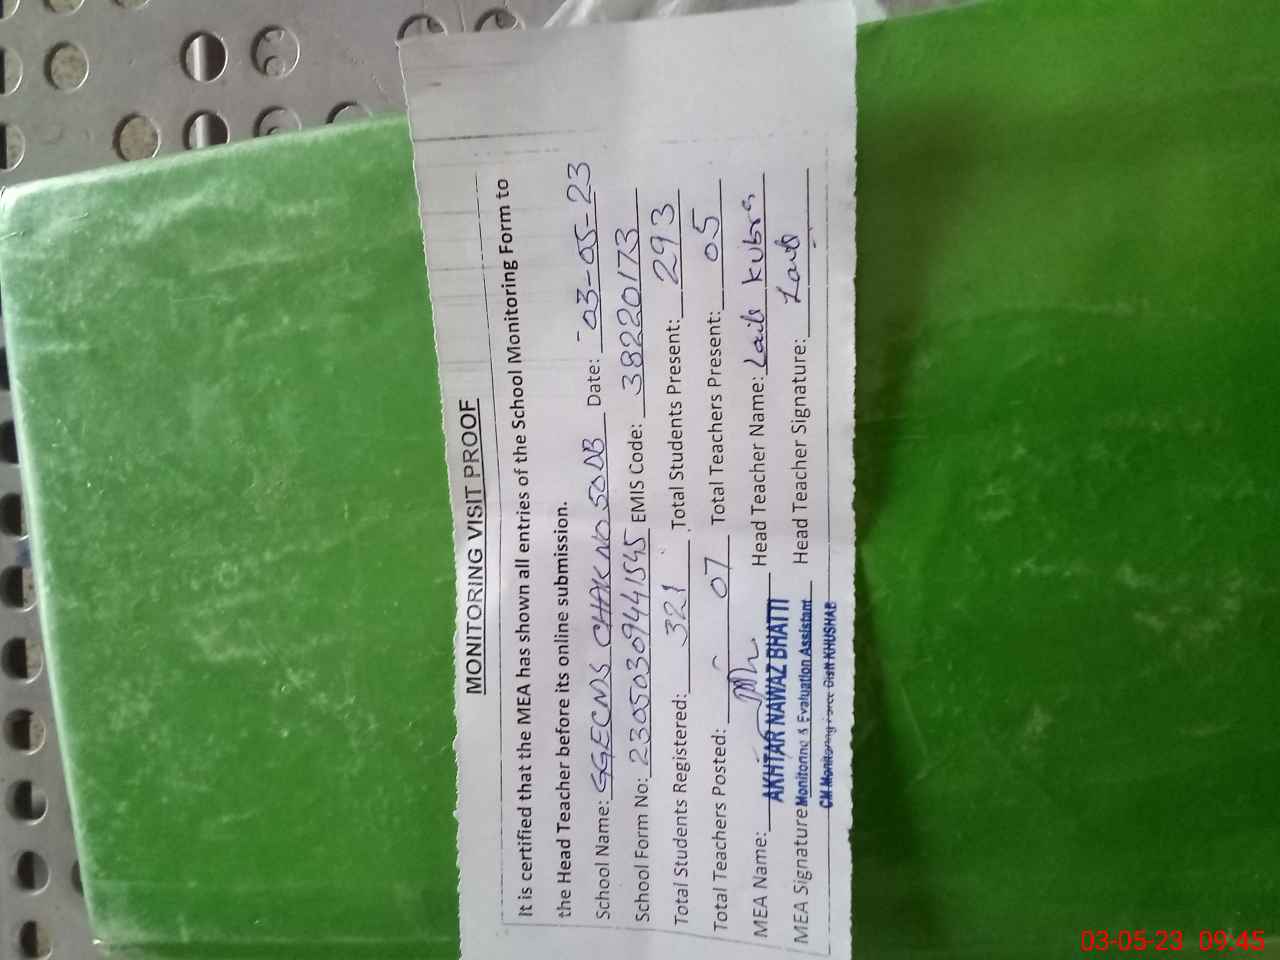 MONITORING VISIT PROOF
It is certified that the MEA has shown all entries of the School Monitoring Form to
the Head Teacher before its online submission.
School Name: GGECMS CHAK NO 50 DB Date: 03-05-23
School Form No: 23050309441545 EMIS Code: 38220173
Total Students Registered: 321 Total Students Present: 293
Total Teachers Posted: 07 Total Teachers Present: 05
MEA Name: AKHTAR NAWAZ BHATTI Head Teacher Name: Laib Kubra
MEA Signature Monitoring & Evaluation Assistant Head Teacher Signature: Laib
CM Monitoring Force Distt KHUSHAB
03-05-23 09:45